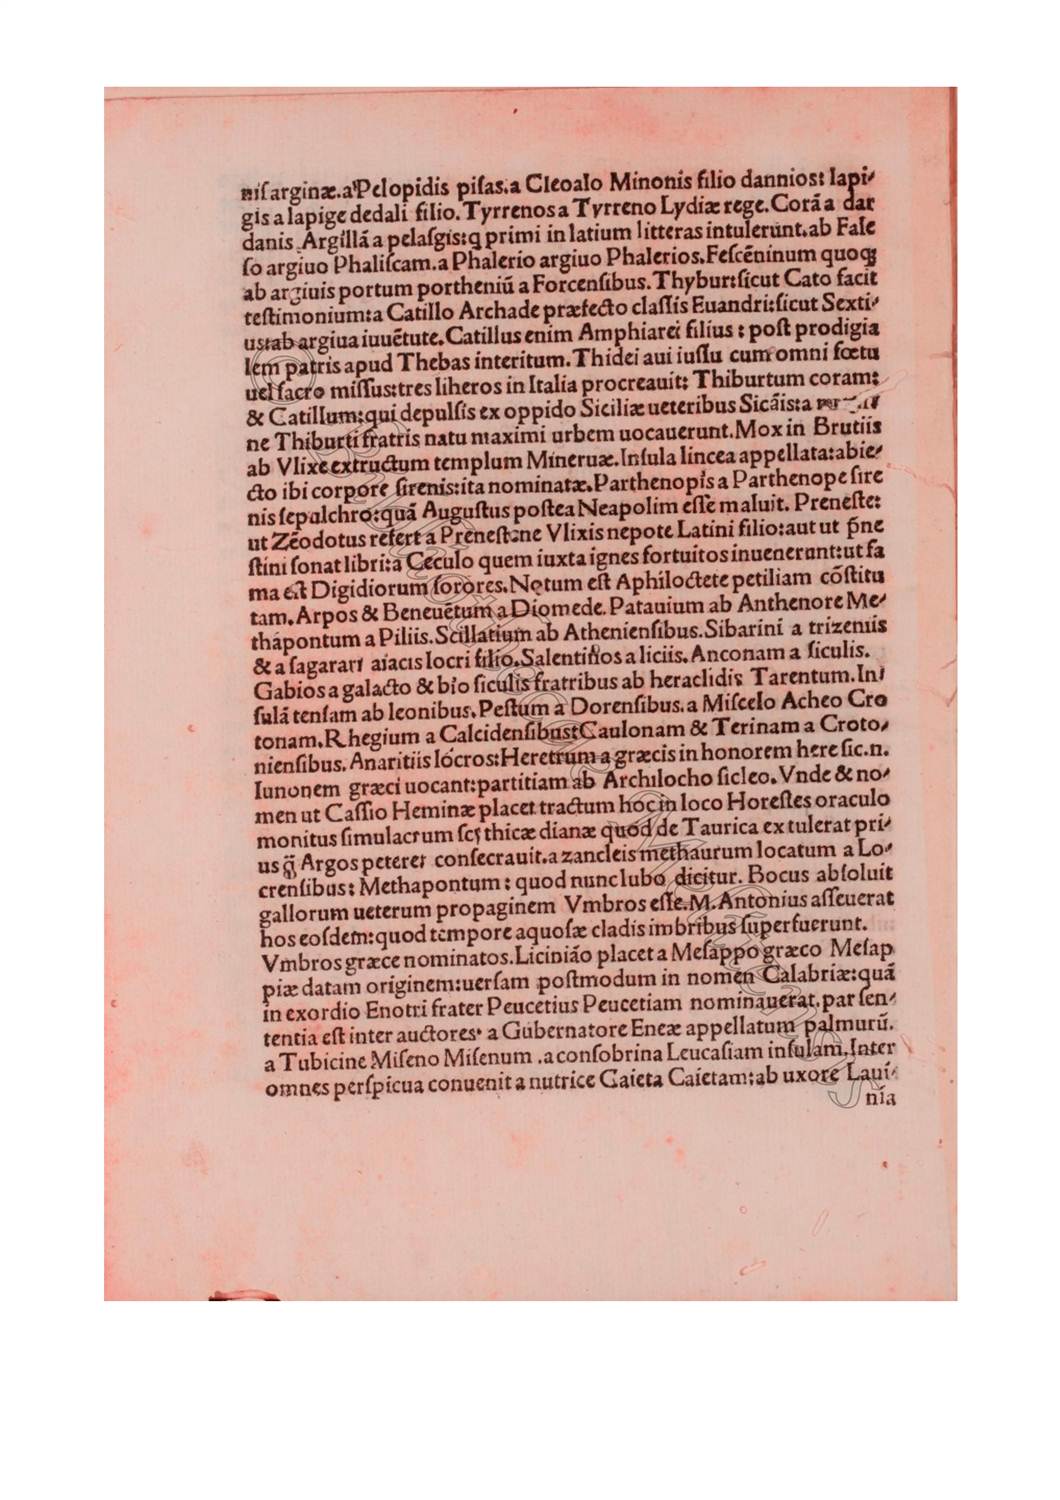 niſarginæ.a Pelopidis piſas.a Cleoalo Minonis filio dannios: Iapi⸗
gis a lapige dedali filio.Tyrrenos a Tyrreno Lydiæ rege.Corā a dar
danis Argillā a pelaſgis:q primi in latium litteras intulerunt.ab Fale
ſo argiuo Phaliſcam.a Phalerio argiuo Phalerios.Feſcēninum quoqꝫ
ab argiuis portum portheniū a Forcenſibus.Thyburt:ſicut Cato facit
teſtimonium:a Catillo Archade præfecto claſſis Euandri:ſicut Sexti⸗
us:ab argiua iuuētute.Catillus enim Amphiarei filius : poſt prodigia
lem patris apud Thebas interitum.Thidei aui iuſſu cum omni fœtu
uel ſacro miſſus:tres liheros in Italia procreauit: Thiburtum coram:
& Catillum:qui depulſis ex oppido Siciliæ ueteribus Sicāis:a
ne Thiburti fratris natu maximi urbem uocauerunt.Mox in Brutiis
ab Vlixe extructum templum Mineruæ.Inſula lincea appellata:abie⸗
cto ibi corpore ſirenis:ita nominatæ.Parthenopis a Parthenope ſire
nis ſepulchro:quā Auguſtus poſtea Neapolim eſſe maluit. Preneſte:
ut Zēodotus refert a Preneſtene Vlixis nepote Latini filio:aut ut p̄ne
ſtini ſonat libri:a Ceculo quem iuxta ignes fortuitos inuenerunt:ut fa
ma eſt Digidiorum ſorores.Notum eſt Aphiloctete petiliam cōſtitu
tam.Arpos & Beneuētum a Diomede.Patauium ab Anthenore Me⸗
thapontum a Piliis.Scillatium ab Athenienſibus.Sibarini a trizeniis
& a ſagarari aiacis locri filio.Salentinos a liciis.Anconam a ſiculis.
Gabios a galacto & bio ſiculis fratribus ab heraclidis Tarentum.In⸗
ſulā tenſam ab Ieonibus.Peſtum a Dorenſibus.a Miſcelo Acheo Cro
tonam.Rhegium a Calcidenſibus:Caulonam & Terinam a Croto⸗
nienſibus.Anaritiis locros:Heretrum a græcis in honorem here ſic.n.
Iunonem græci uocant:partitiam ab Archilocho ſicleo.Vnde & no⸗
men ut Caſſio Heminæ placet tractum hoc in loco Horeſtes oraculo
monitus ſimulacrum ſcythicæ dianæ quod de Taurica extulerat pri⸗
us q̄ Argos peteret conſecrauit.a zancleis methaurum locatum a Lo⸗
crenſibus: Methapontum : quod nunc lubo dicitur. Bocus abſoluit
gallorum ueterum propaginem Vmbros eſſe.M.Antonius aſſeuerat
hos eoſdem:quod tempore aquoſæ cladis imbribus ſuperfuerunt.
Vmbros græce nominatos.Liciniāo placet a Meſappo græco Meſap
piæ datam originem:uerſam poſtmodum in nomen Calabriæ:quā
in exordio Enotri frater Peucetius Peucetiam nominauerat.par ſen⸗
tentia eſt inter auctores· a Gubernatore Eneæ appellatum palmurū.
a Tubicine Miſeno Miſenum .a conſobrina Leucaſiam inſulam.Inter
omnes perſpicua conuenit a nutrice Caieta Caietam:ab uxore Laui⸗
nia